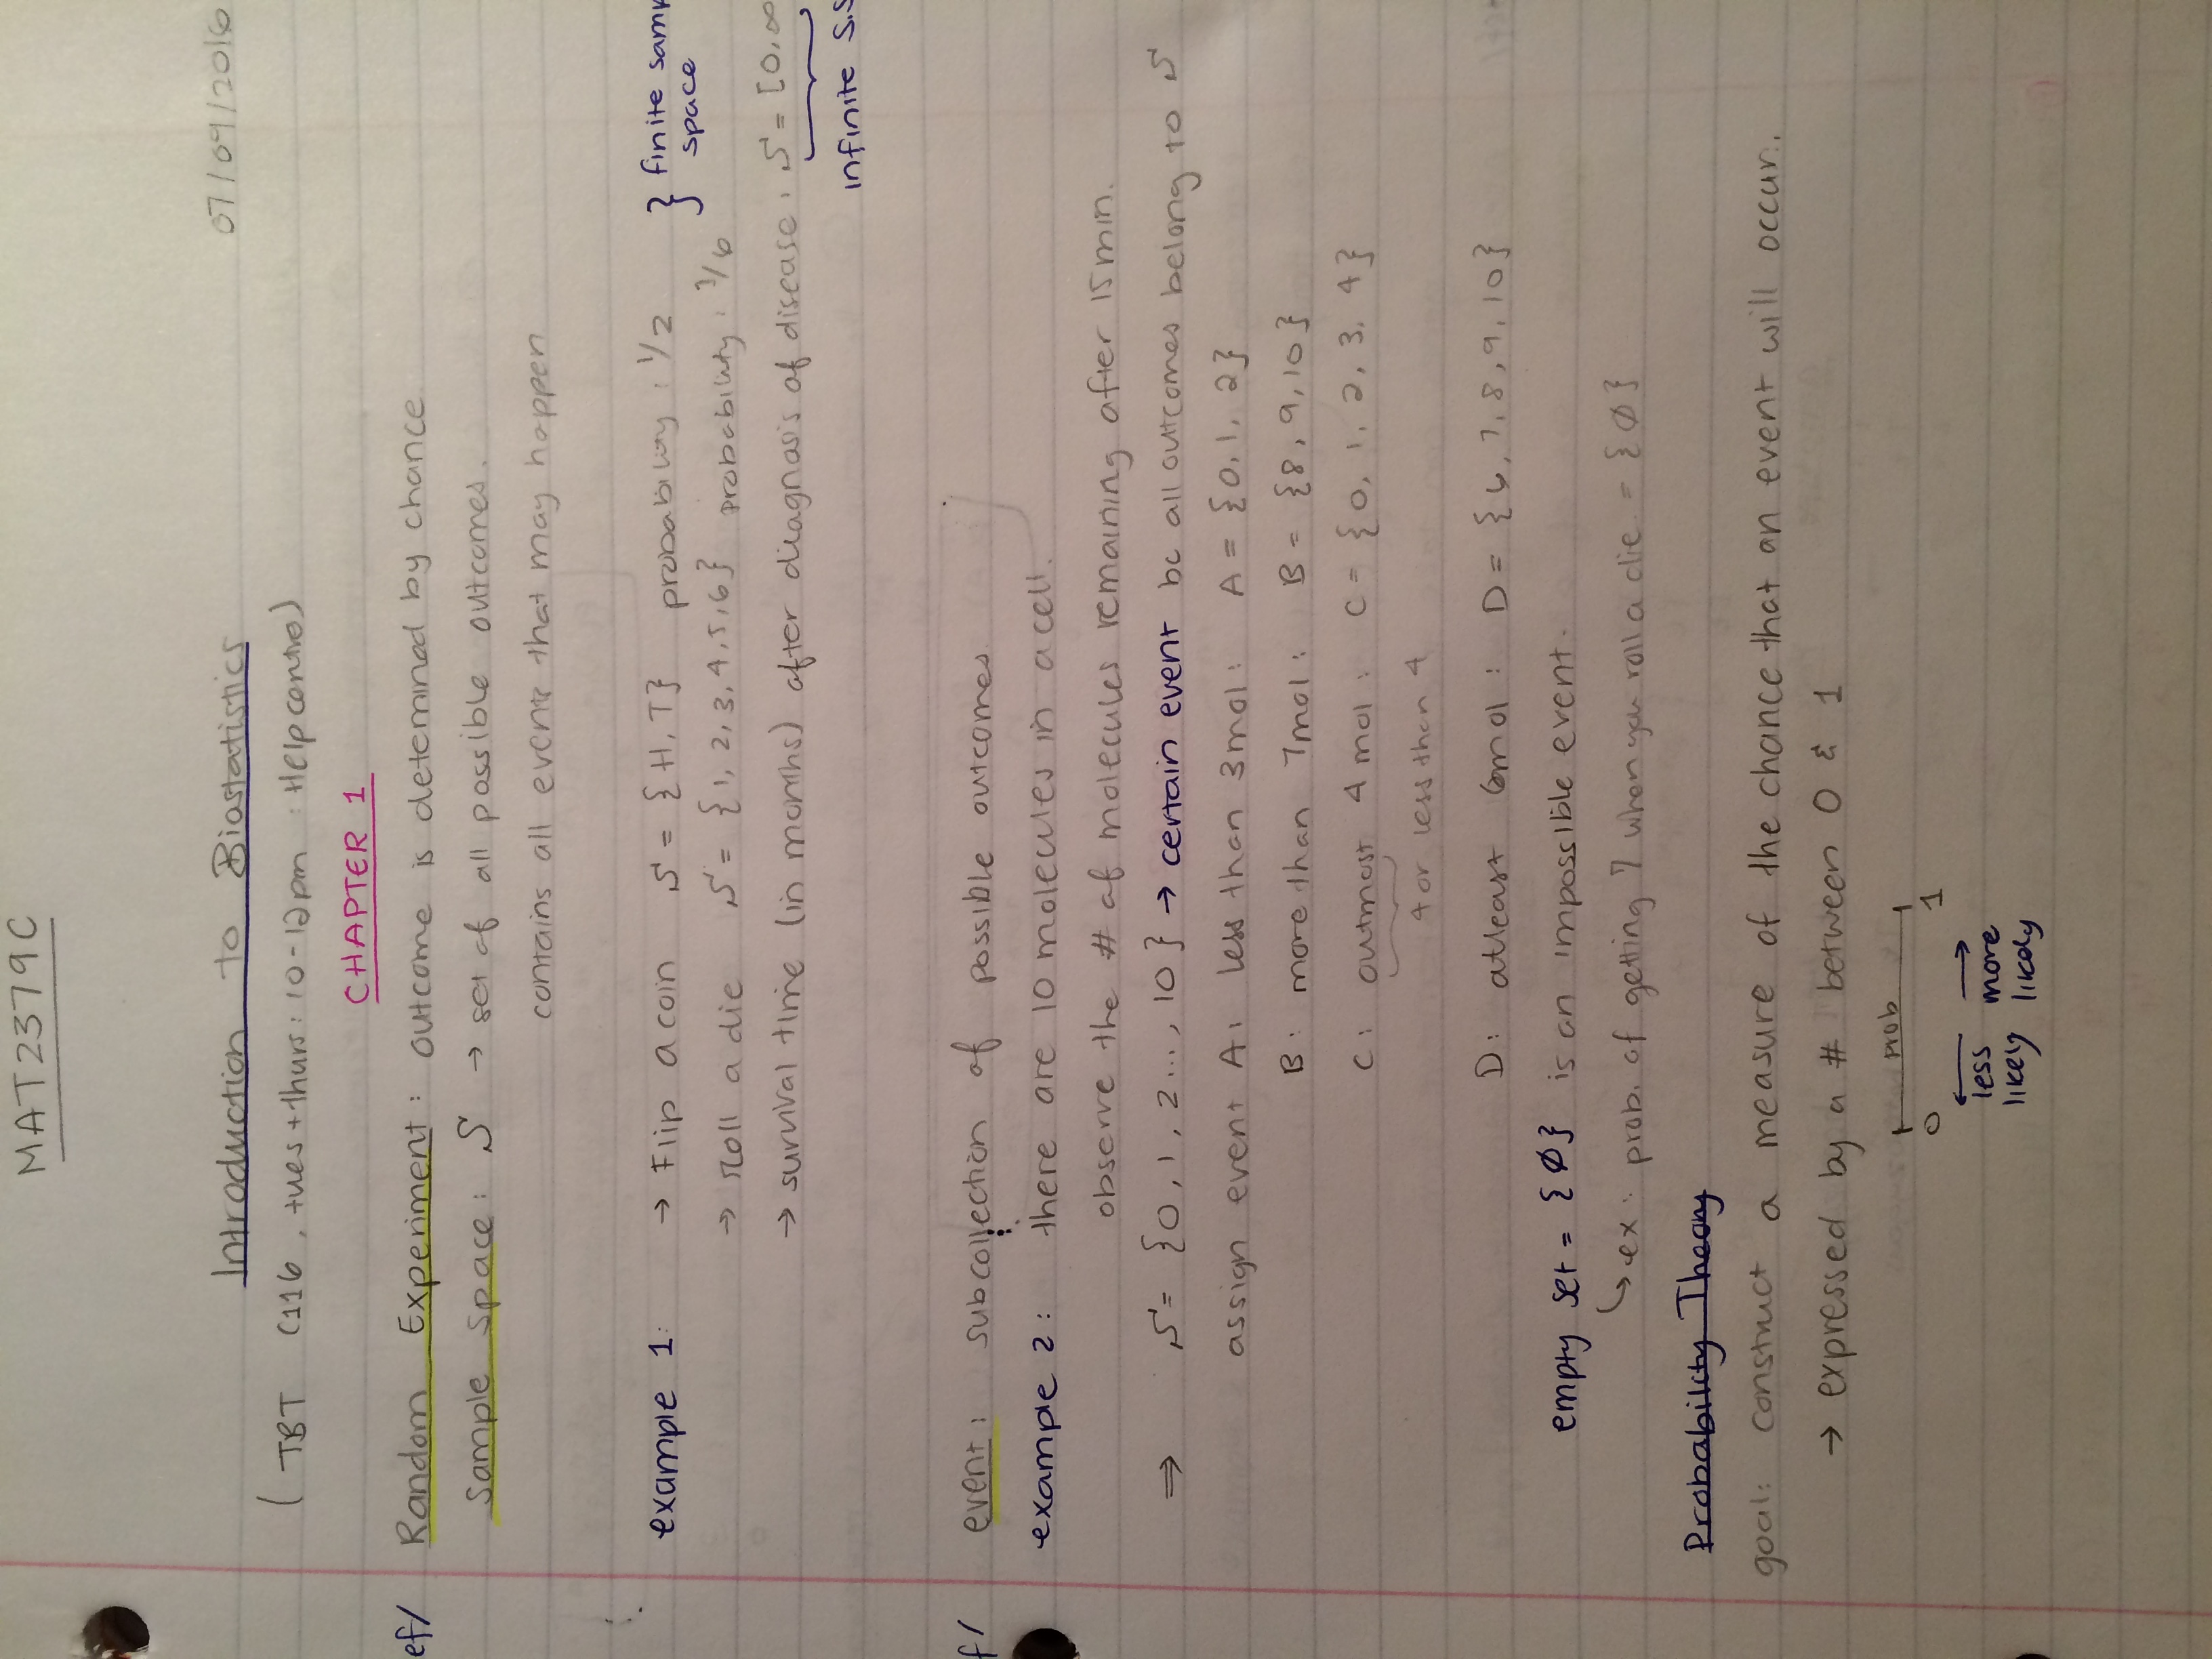 MAT2379C
07/09/2016
Introduction to Biostatistics
( TBT C116, tues+thurs: 10-12pm : Help centre)
CHAPTER 1
ef/ Random Experiment: outcome is determined by chance
Sample Space: S → set of all possible outcomes.
contains all events that may happen
example 1: → Flip a coin S = {H, T} probability: 1/2 } finite sam
→ roll a die S = {1, 2, 3, 4, 5, 6} probability: 1/6 space
→ survival time (in months) after diagnosis of disease: S = [0, ∞
infinite S.S
f/ event: subcollection of possible outcomes
example 2: there are 10 molecules in a cell.
observe the # of molecules remaining after 15min.
⇒ S = {0, 1, 2..., 10} → certain event bc all outcomes belong to S
assign event A: less than 3mol: A = {0, 1, 2}
B: more than 7mol: B = {8, 9, 10}
C: outmost 4 mol: C = {0, 1, 2, 3, 4}
4 or less than 4
D: atleast 6mol: D = {6, 7, 8, 9, 10}
empty set = {Ø} is an impossible event.
↳ ex: prob. of getting 7 when you roll a die = {Ø}
Probability Theory
goal: construct a measure of the chance that an event will occur.
→ expressed by a # between 0 & 1
prob
0 1
← →
less more
likely likely